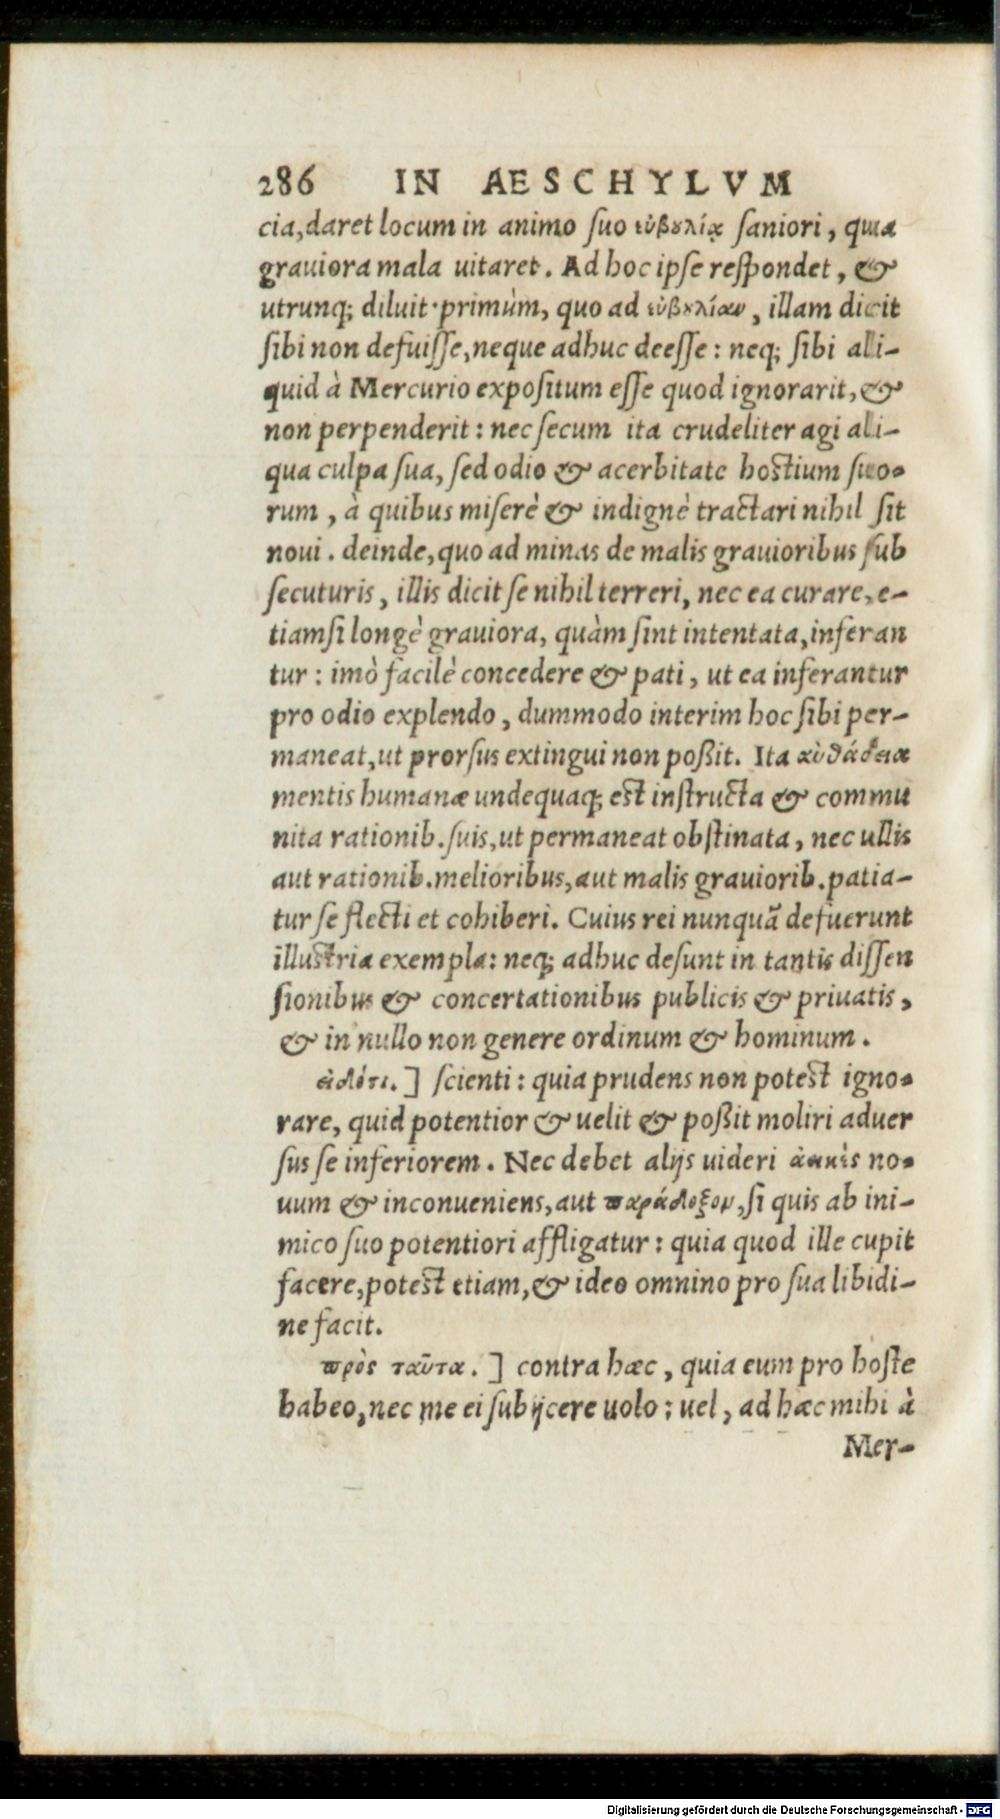 286 IN AESCHYLVM
cia, daret locum in animo suo εὐβουλίᾳ saniori, quia
grauiora mala uitaret. Ad hoc ipse respondet, &
utrunq; diluit. primùm, quo ad εὐβουλίαν, illam dicit
sibi non defuisse, neque adhuc deesse: neq; sibi ali-
quid à Mercurio expositum esse quod ignorarit, &
non perpenderit: nec secum ita crudeliter agi ali-
qua culpa sua, sed odio & acerbitate hostium suo-
rum, à quibus miserè & indignè tractari nihil sit
noui. deinde, quo ad minas de malis grauioribus sub
secuturis, illis dicit se nihil terreri, nec ea curare, e-
tiamsi longè grauiora, quàm sint intentata, inferan
tur: imò facilè concedere & pati, ut ea inferantur
pro odio explendo, dummodo interim hoc sibi per-
maneat, ut prorsus extingui non poßit. Ita αὐθάδεια
mentis humanæ undequaq; est instructa & commu
nita rationib. suis, ut permaneat obstinata, nec ullis
aut rationib. melioribus, aut malis grauiorib. patia-
tur se flecti et cohiberi. Cuius rei nunquã defuerunt
illustria exempla: neq; adhuc desunt in tantis dissen
sionibus & concertationibus publicis & priuatis,
& in nullo non genere ordinum & hominum.
εἰδότι.] scienti: quia prudens non potest igno-
rare, quid potentior & uelit & poßit moliri aduer
sus se inferiorem. Nec debet alijs uideri ἀεικὲς no-
uum & inconueniens, aut παράδοξον, si quis ab ini-
mico suo potentiori affligatur: quia quod ille cupit
facere, potest etiam, & ideo omnino pro sua libidi-
ne facit.
πρὸς ταῦτα.] contra hæc, quia eum pro hoste
habeo, nec me ei subijcere uolo: uel, ad hæc mihi à
Mer-
Digitalisierung gefördert durch die Deutsche Forschungsgemeinschaft - DFG